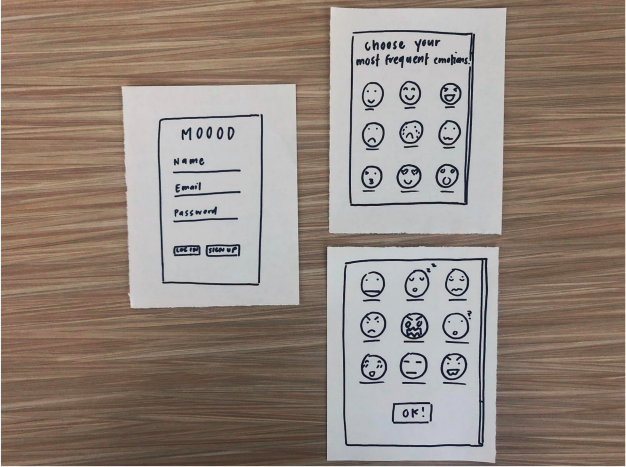 MOOOD
Name
Email
Password
LOG IN SIGN UP
Choose your
most frequent emotions!
z z
?
OK!